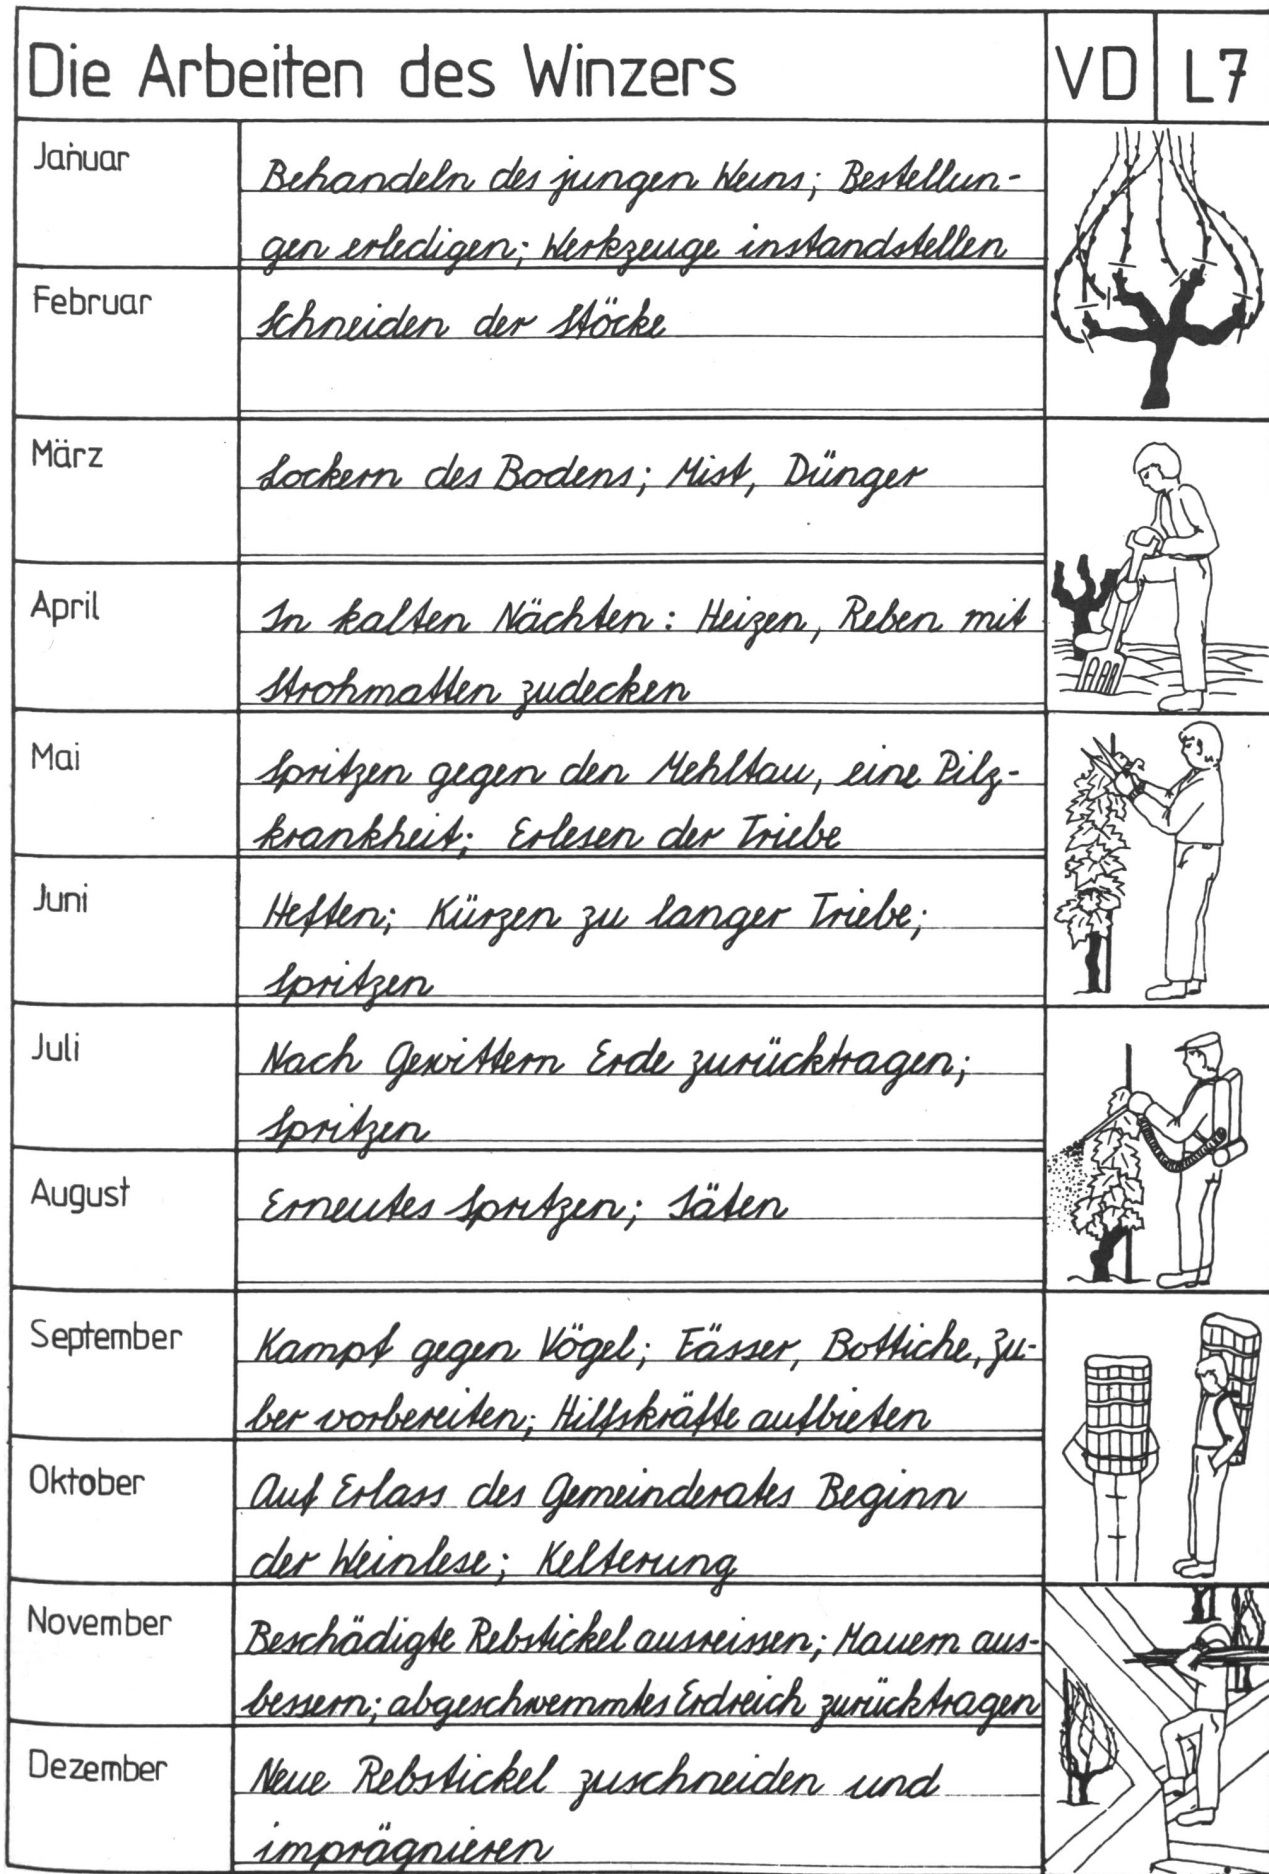 Die Arbeiten des Winzers VD L7
Januar
Behandeln des jungen Weins; Bestellun-
gen erledigen; Werkzeuge instandstellen
Februar
Schneiden der Stöcke
März
Lockern des Bodens; Mist, Dünger
April
In kalten Nächten: Heizen, Reben mit
Strohmatten zudecken
Mai
Spritzen gegen den Mehltau, eine Pilz-
krankheit; Erlesen der Triebe
Juni
Heften; Kürzen zu langer Triebe;
Spritzen
Juli
Nach Gewittern Erde zurücktragen;
Spritzen
August
Erneutes Spritzen; Jäten
September
Kampf gegen Vögel; Fässer, Bottiche, Zu-
ber vorbereiten; Hilfskräfte aufbieten
Oktober
Auf Erlass des Gemeinderates Beginn
der Weinlese; Kelterung
November
Beschädigte Rebstickel ausreissen; Mauern aus-
bessern; abgeschwemmtes Erdreich zurücktragen
Dezember
Neue Rebstickel zuschneiden und
imprägnieren